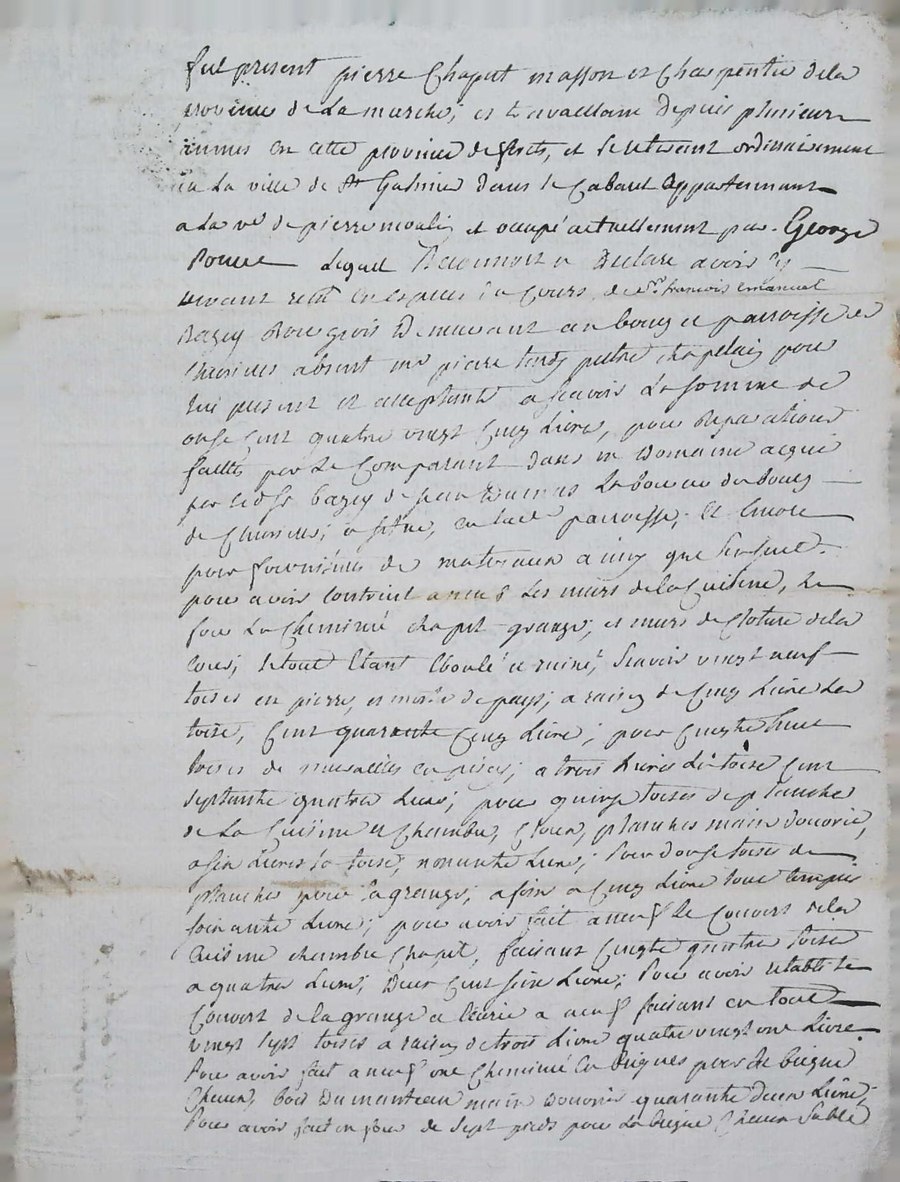 fut present pierre Chaput masson et Charpentie dela
province de La marche, et travaillant Depuis plusieurs
annees en cette province de forets, et se retirant ordinairement
en La ville de St Galmier dans le Cabaret appartennant
a La ve de pierre moulin et occupé actuellement par George
lequel Reconnoit et Declare avoir
recu en especes du Cours de Sr. francois emanuel
Bazin Bourgeois Demeurant au bourg et parroisse de
absent mr pierre pretre chapelain pour
lui present et acceptant a scavoir La somme de
onze cent quatre vingt Cinq Livres, pour Reparations
faittes par Le Comparant dans un Domaine acquis
par led Sr bazin de jean Dumas Laboureur du bourg
de et situé, en lad. parroisse; Et Encore
pour fournitures de materiaux ainsy que Sensuit.
pour avoir Construit a neuf Les murs de la Cuisine, Le
four La Cheminé chapit grange, et murs de Cloture dela
Cour; le tout Etant Eboulé et ruiné, Scavoir vingt neuf
toises en pierre, et mortie de pays, a raison de Cinq Livre La
toise, Cent quarante Cinq Livre; pour Cinquante huit
toises de murailles en pizey; a trois Livres La toise Cent
Septante quatre Livres; pour quinze toises de planches
de La Cuisine et Chambre, Cloux, planches main Douvrie,
a six Livres la toise, nonante Livre; pour Douze toises de
planches pour la grange; a Cinq Livre tout Compris
soixante Livre; pour avoir fait a neuf le Couvert dela
Cuisine chambre Chapit, faisant Cinquante quatre toises
a quatre Livres, Deux Cent seize Livre; Pour avoir retabli Le
Couvert de la grange et Ecurie a neuf faisant en tout
vingt Sept toises a raison de trois Livre quatre vingt une Livre
Pour avoir fait a neuf une Cheminé En briques prix de brique
Chaux, bois Du manteau main Douvrie quarante Deux Livre;
Pour avoir fait un four de Sept pieds pour La brique Chaux Sable